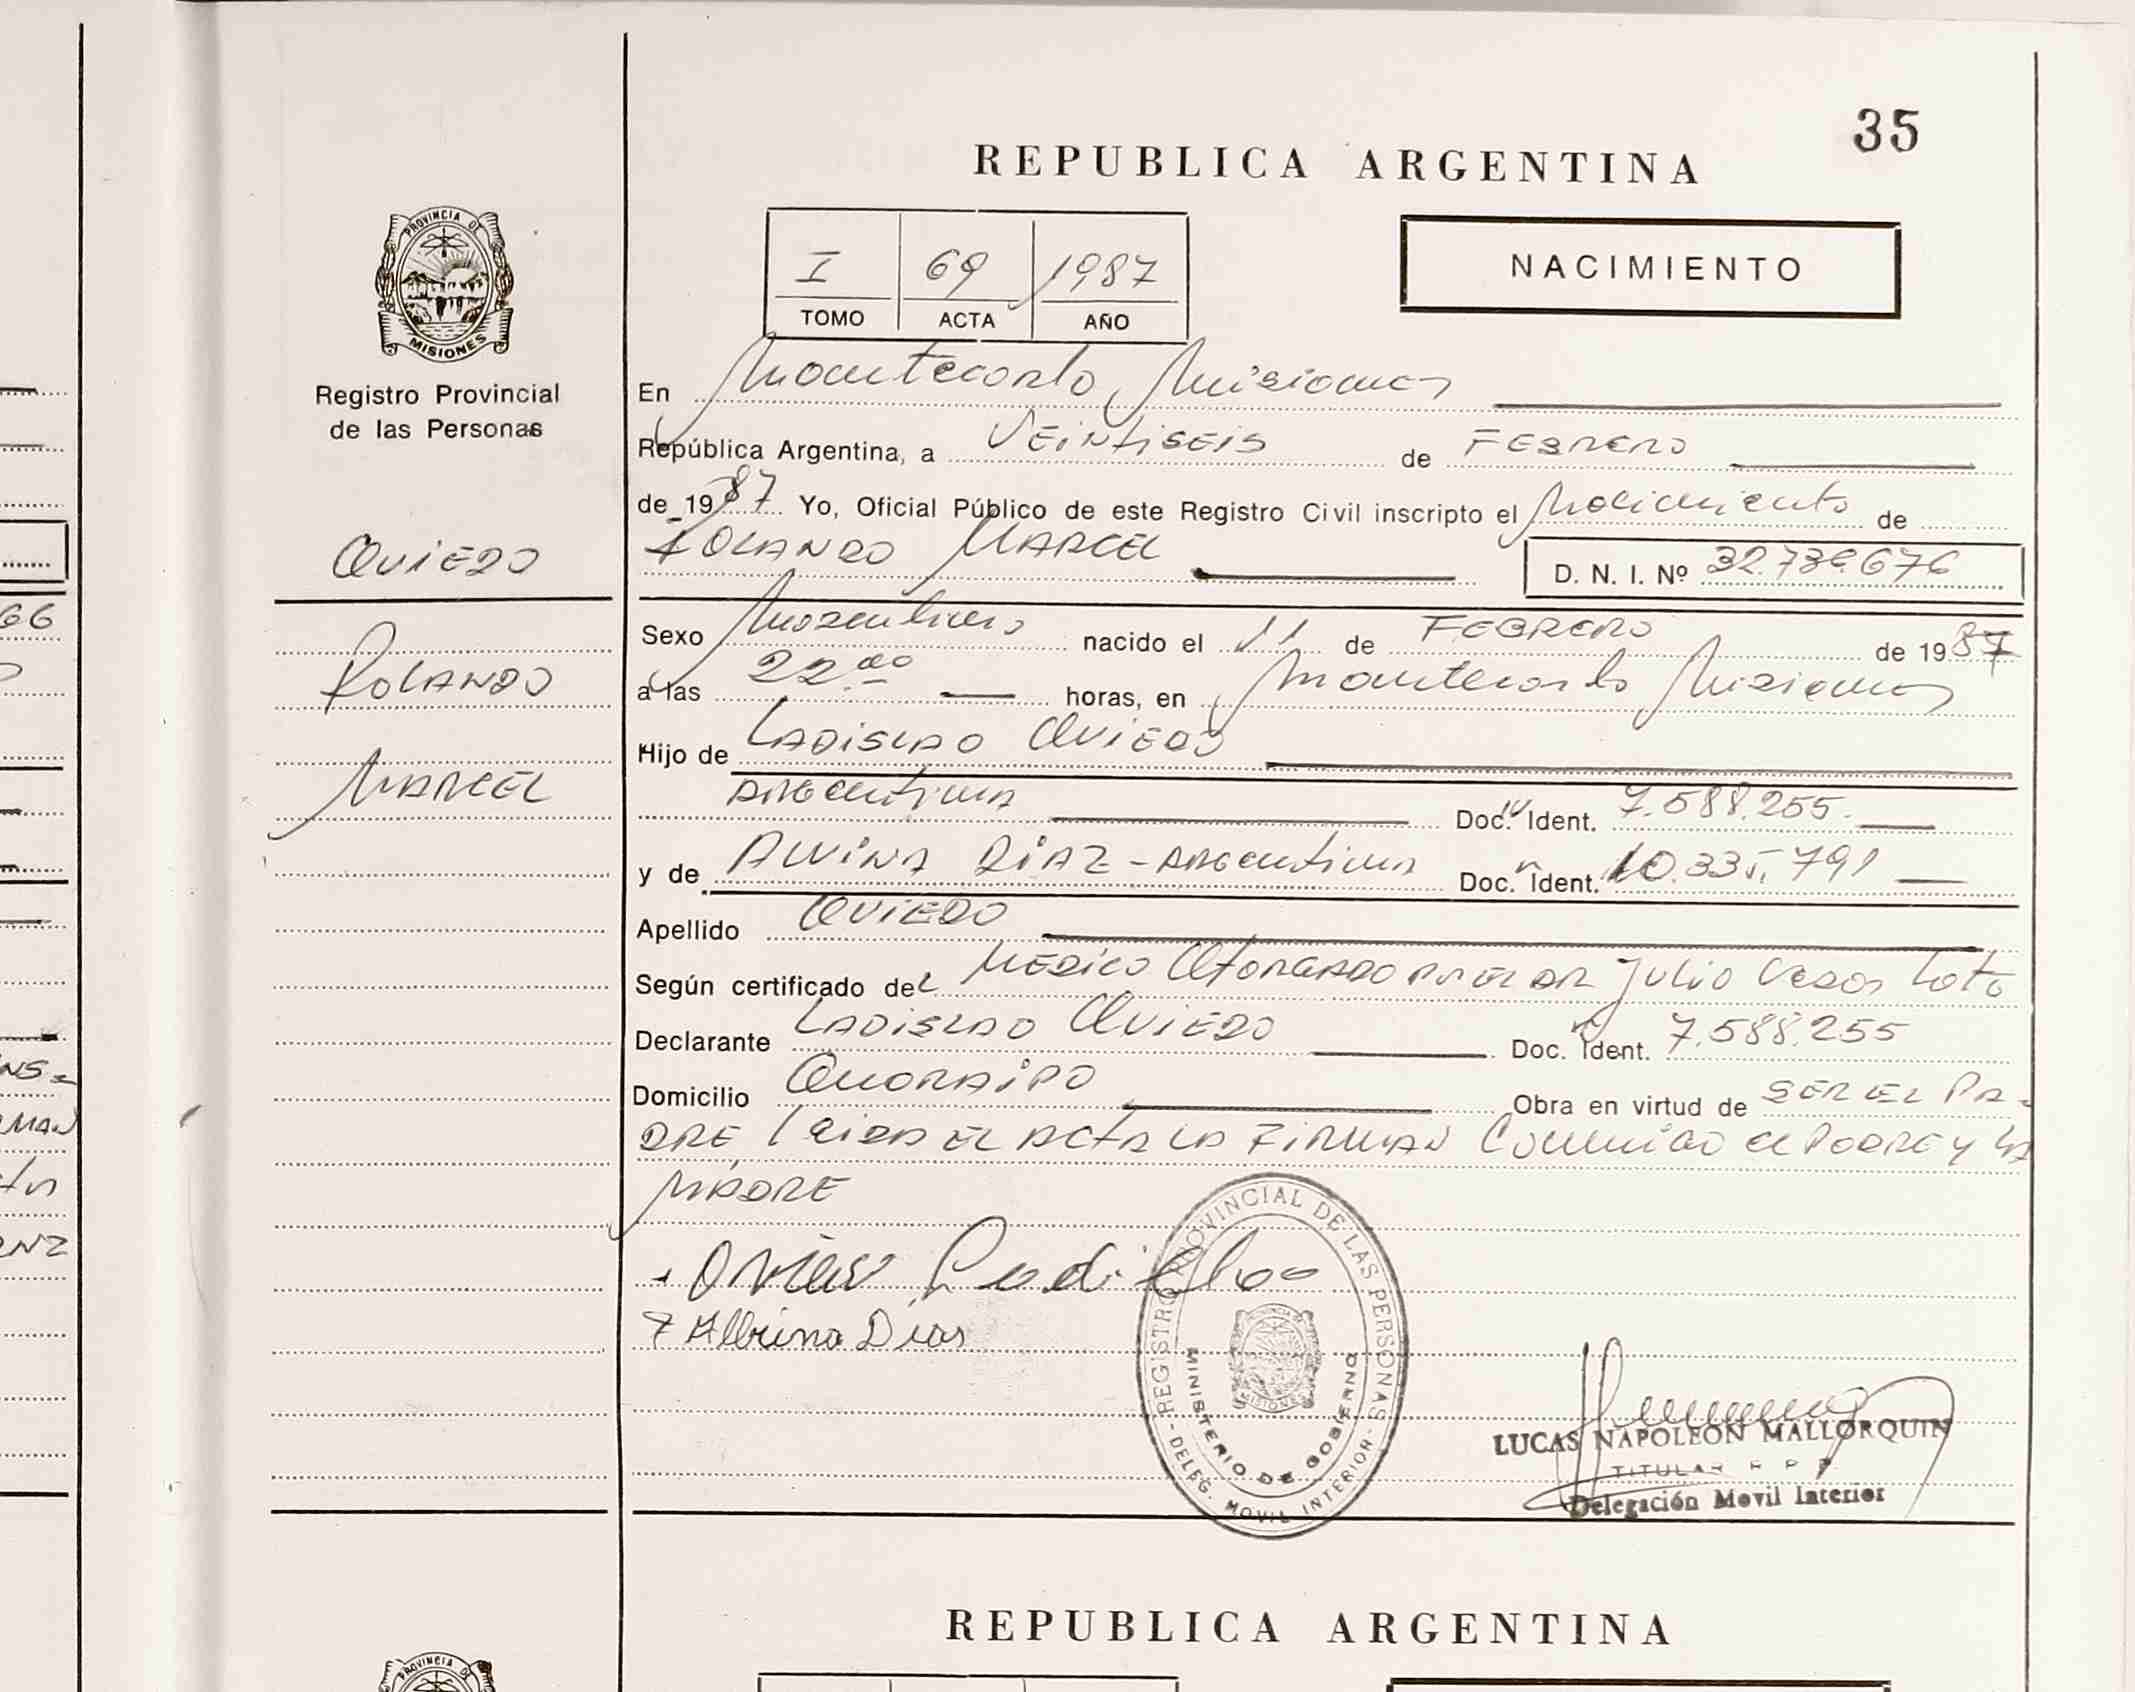 35
REPUBLICA ARGENTINA
PROVINCIA DE
MISIONES
Registro Provincial
de las Personas
I 69 1987
TOMO ACTA AÑO
NACIMIENTO
En Montecarlo, Misiones
República Argentina, a VEINTISEIS de FEBRERO
de 1987 Yo, Oficial Público de este Registro Civil inscripto el Nacimiento de
OVIEDO
ROLANDO MARCEL
D. N. I. Nº 32.739.676
Sexo Masculino nacido el 11 de FEBRERO de 1987
ROLANDO
a las 22.00 horas, en Montecarlo Misiones
Hijo de LADISLAO OVIEDO
MARCEL
ARGENTINA Doc. Ident. 7.588.255.
y de ALVINA DIAZ - ARGENTINA Doc. Ident. 10.335.791
Apellido OVIEDO
Según certificado del MEDICO OTORGADO POR EL DR JULIO Cesar Loto
Declarante LADISLAO OVIEDO Doc. Ident. 7.588.255
Domicilio Domicilio Obra en virtud de SER EL PA-
DRE Leida EL ACTA LA FIRMAN Conmigo el PADRE y LA
MADRE
Oviedo Ladislao
Albina Dias
REGISTRO PROVINCIAL DE LAS PERSONAS
MINISTERIO DE GOBIERNO
- DELEG. MOVIL INTERIOR -
LUCAS NAPOLEON MALLORQUIN
TITULAR R P P
Delegación Movil Interior
REPUBLICA ARGENTINA
PROVINCIA DE
66
MAN
ENZ